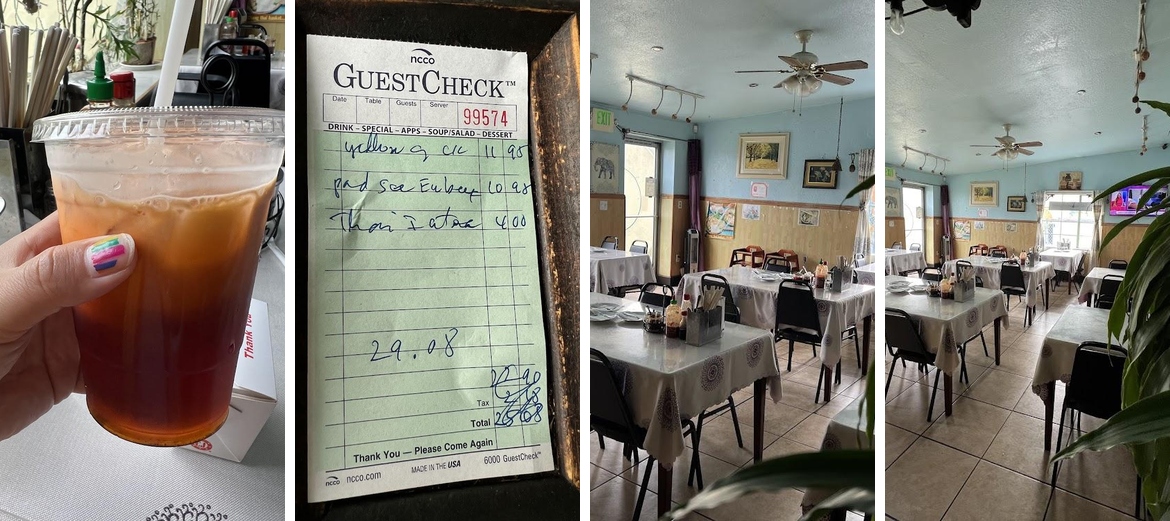 Thank You
ncco
GUESTCHECK™
Date Table Guests Server
99574
DRINK – SPECIAL – APPS – SOUP/SALAD – DESSERT
yellow 11 95
pad see 10 95
Thai 4 00
29.08
Tax
Total
Thank You — Please Come Again
ncco ncco.com MADE IN THE USA 6000 GuestCheck™
EXIT